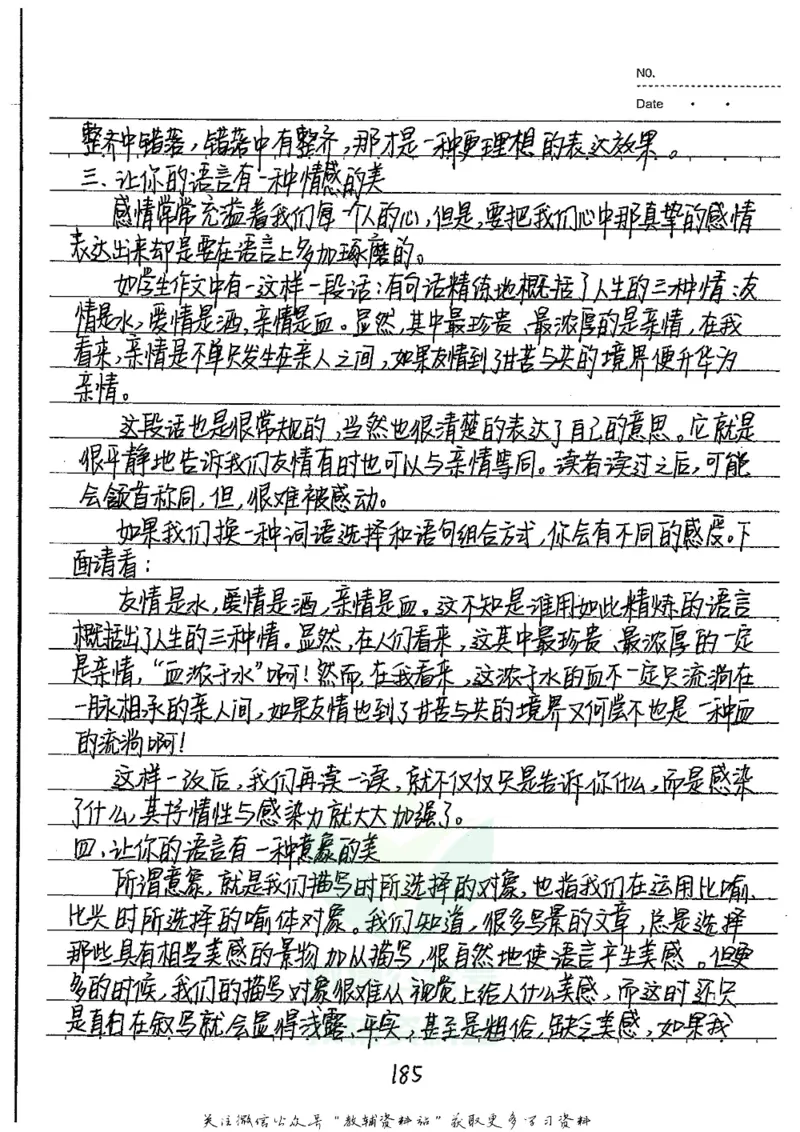 NO.
Date
整齐中错落，错落中有整齐，那才是一种更理想的表达效果。
三、让你的语言有一种情感的美
感情常常充溢着我们每一个人的心，但是，要把我们心中那真挚的感情
表达出来却是要在语言上多加琢磨的。
如学生作文中有一这样一段话：有句话精练地概括了人生的三种情：友
情是水，爱情是酒，亲情是血。显然，其中最珍贵、最浓厚的是亲情，在我
看来，亲情是不单只发生在亲人之间，如果友情到了甘苦与共的境界便升华为
亲情。
这段话也是很常规的，当然也很清楚的表达了自己的意思。它就是
很平静地告诉我们友情有时也可以与亲情等同。读者读过之后，可能
会颔首称同，但，很难被感动。
如果我们换一种词语选择和语句组合方式，你会有不同的感受。下
面请看：
友情是水，爱情是酒，亲情是血。这不知是谁用如此精炼的语言
概括出了人生的三种情。显然，在人们看来，这其中最珍贵、最浓厚的一定
是亲情，“血浓于水”啊！然而，在我看来，这浓于水的血不一定只流淌在
一脉相承的亲人间，如果友情也到了甘苦与共的境界又何尝不也是一种血
的流淌啊！
这样一改后，我们再读一读，就不仅仅只是告诉你什么，而是感染
了什么，其抒情性与感染力就大大加强了。
四、让你的语言有一种意象的美
所谓意象，就是我们描写时所选择的对象，也指我们在运用比喻、
比兴时所选择的喻体对象。我们知道，很多写景的文章，总是选择
那些具有相当美感的景物加从描写，很自然地使语言产生美感。但更
多的时候，我们的描写对象很难从视觉上给人什么美感，而这时还只
是直白在叙写就会显得浅露、平实，甚至是粗俗，缺乏美感，如果我
185
关注微信公众号"教辅资料站"获取更多学习资料